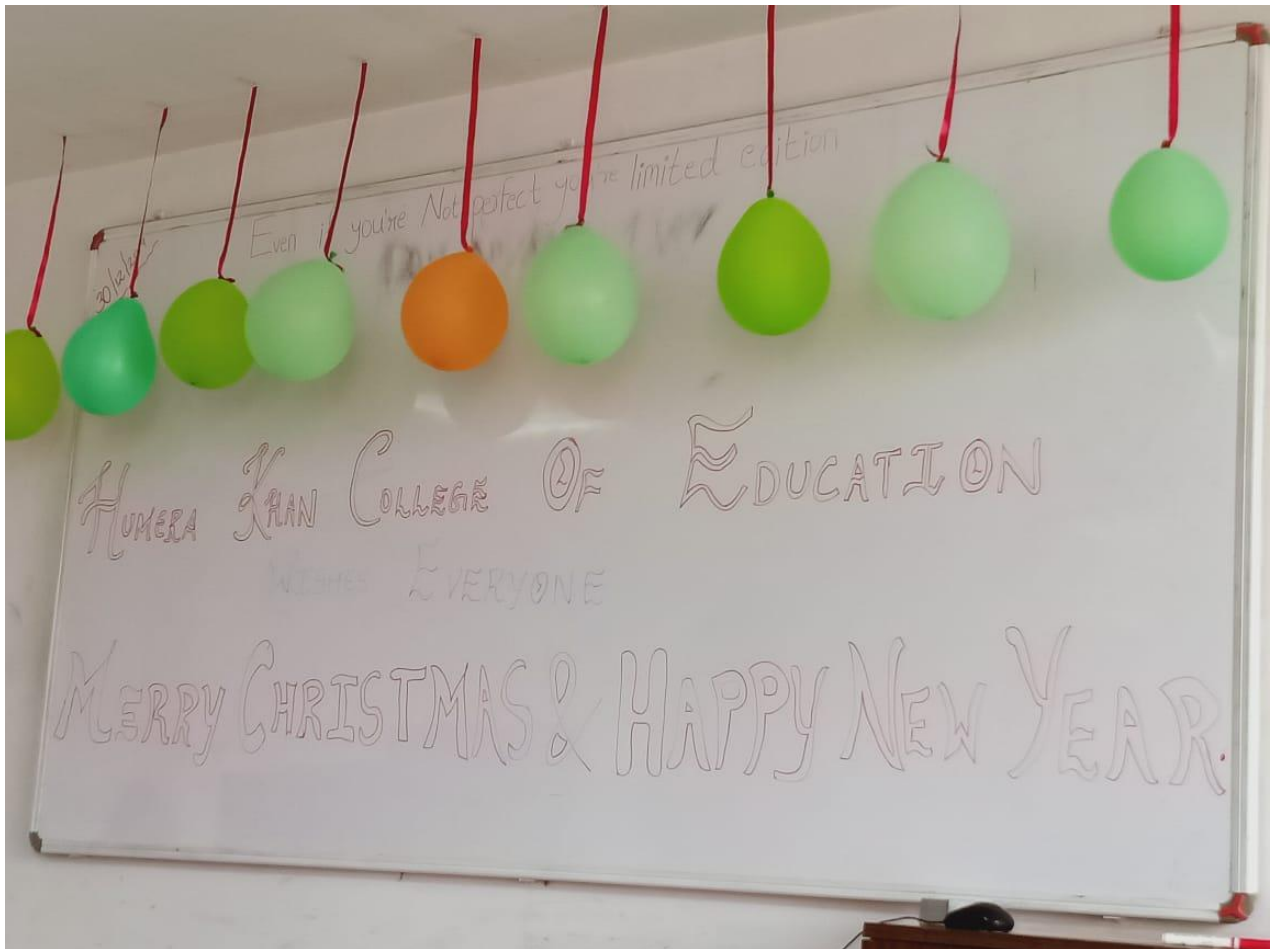 Even if you're Not perfect you're limited edition
HUMERA KHAN COLLEGE OF EDUCATION
WISHES EVERYONE
MERRY CHRISTMAS & HAPPY NEW YEAR.